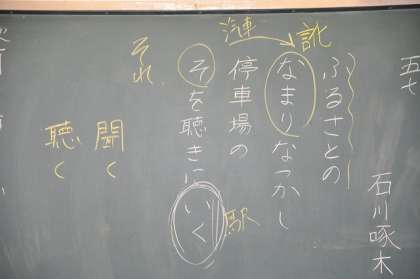 五七
石川啄木
ふるさとの
訛
なまりなつかし
汽車
停車場の
駅
そを聴きにいく
それ
聞く
聴く